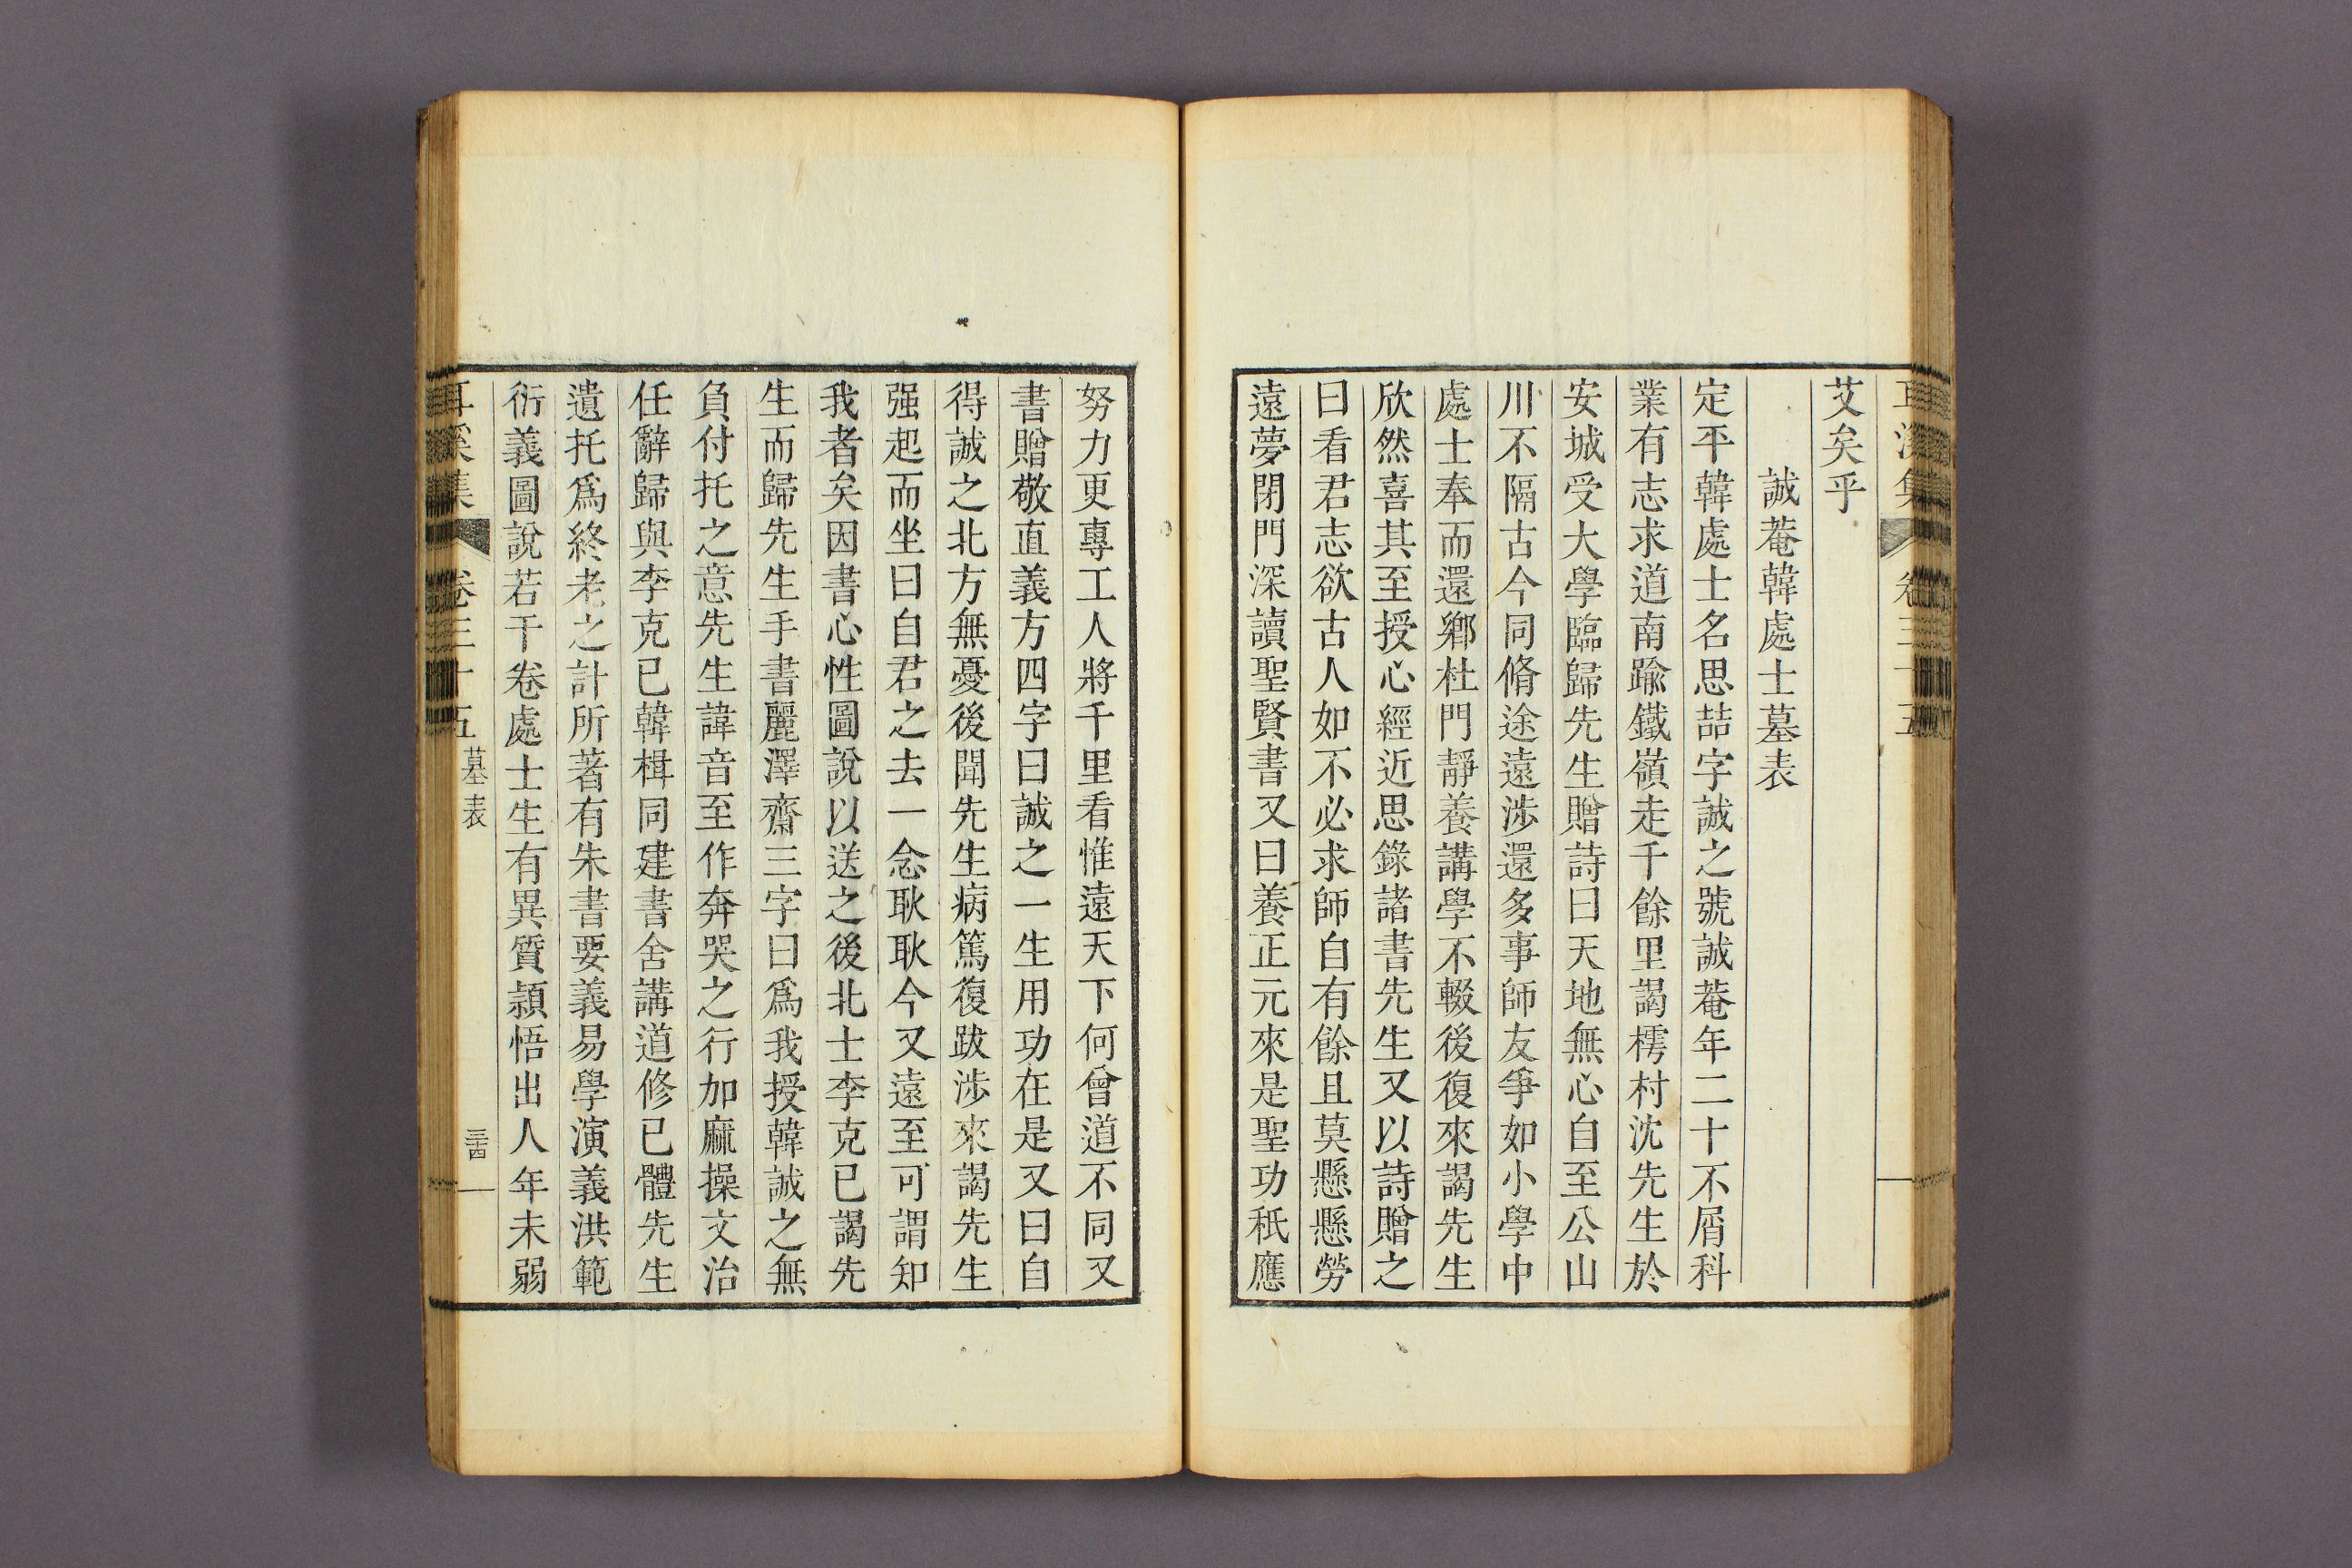 艾矣乎
誠菴韓處士墓表
定平韓處士名思喆字誠之號誠菴年二十不屑科
業有志求道南踰鐵嶺走千餘里謁樗村沈先生於
安城受大學臨歸先生贈詩曰天地無心自至公山
川不隔古今同脩途遠涉還多事師友爭如小學中
處士奉而還鄕杜門靜養講學不輟後復來謁先生
欣然喜其至授心經近思錄諸書先生又以詩贈之
曰看君志欲古人如不必求師自有餘且莫懸懸勞
遠夢閉門深讀聖賢書又曰養正元來是聖功秖應
努力更專工人將千里看惟遠天下何曾道不同又
書贈敬直義方四字曰誠之一生用功在是又曰自
得誠之北方無憂後聞先生病篤復跋涉來謁先生
强起而坐曰自君之去一念耿耿今又遠至可謂知
我者矣因書心性圖說以送之後北士李克已謁先
生而歸先生手書麗澤齋三字曰爲我授韓誠之無
負付托之意先生諱音至作奔哭之行加麻操文治
任辭歸與李克已韓楫同建書舍講道修已體先生
遺托爲終老之計所著有朱書要義易學演義洪範
衍義圖說若干卷處士生有異質頴悟出人年未弱
耳溪集 卷三十五 墓表 三十四